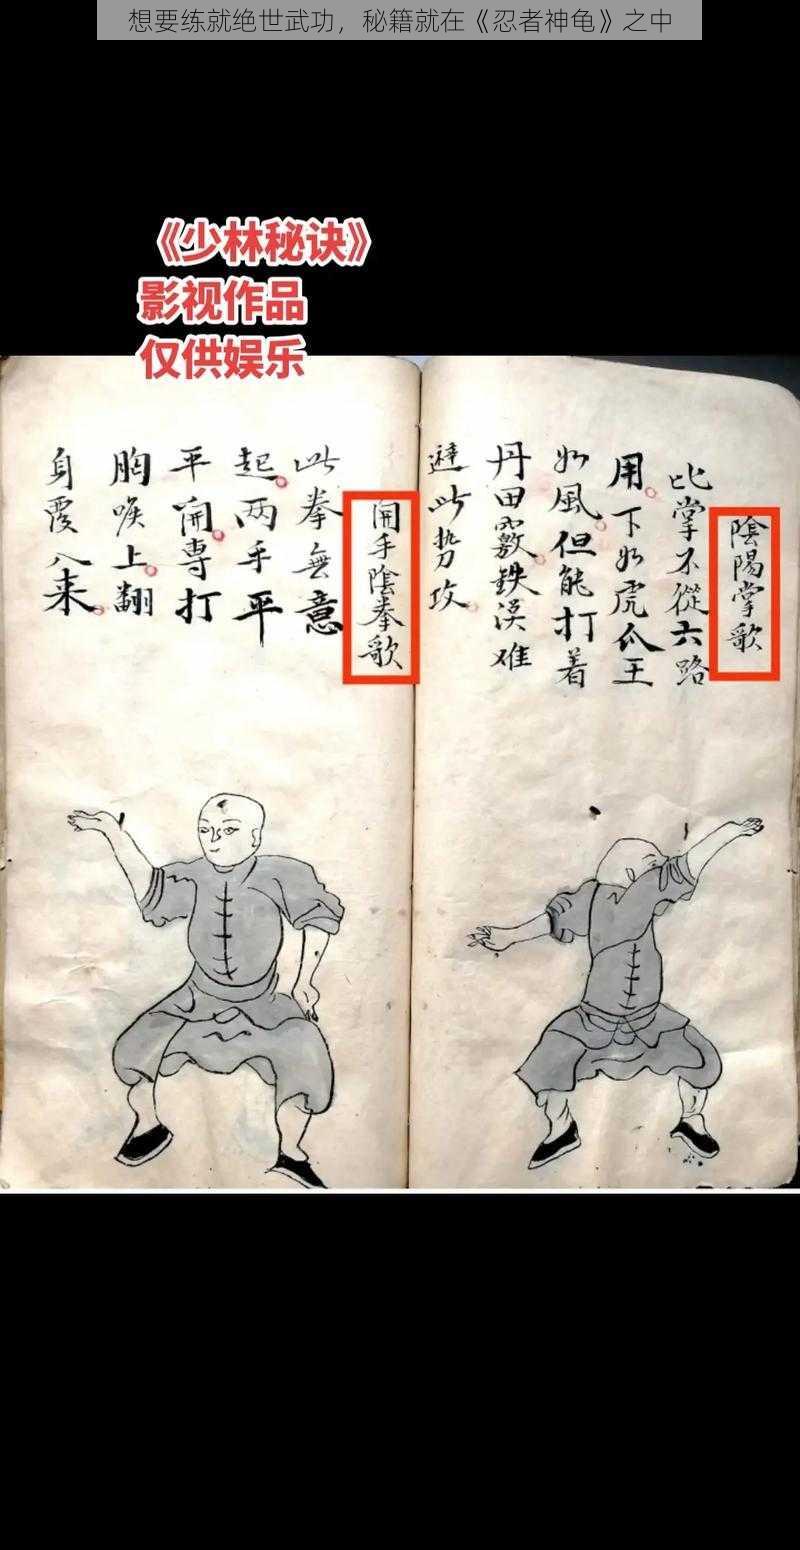 想要练就绝世武功，秘籍就在《忍者神龟》之中
《少林秘诀》
影视作品
仅供娱乐
陰陽掌歌
此掌不從六路
用下如虎爪王
如風但能打着
丹田竅鉄漢难
避此势攻
開手陰拳歌
此拳無意
起両手平
平開專打
胸喉上翻
身覆八来